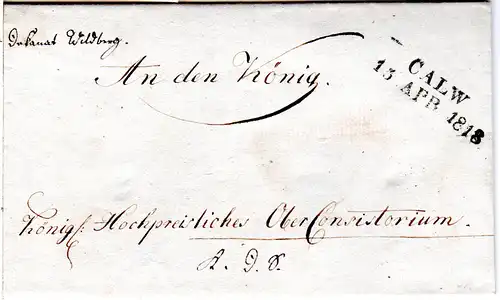 Dekanat Wildberg.
An den König.
CALW
13 APR 1818
Königl: Hochpreisliches OberConsistorium.
A. D. S.